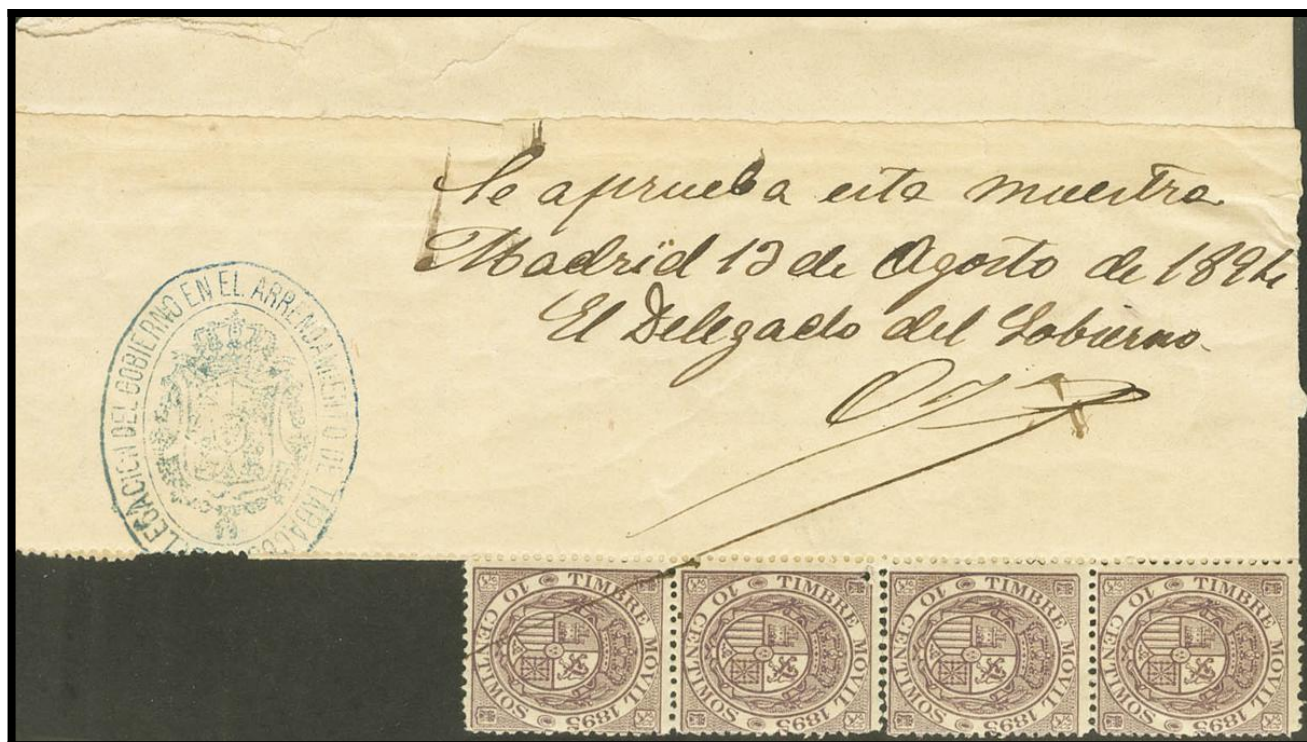 Se aprueba esta muestra
Madrid 13 de Agosto de 1894
El Delegado del Gobierno
DELEGACION DEL GOBIERNO EN EL ARRENDAMIENTO DE TABACOS
TIMBRE MOVIL 1895
10 CENTIMOS
TIMBRE MOVIL 1895
10 CENTIMOS
TIMBRE MOVIL 1895
10 CENTIMOS
TIMBRE MOVIL 1895
10 CENTIMOS